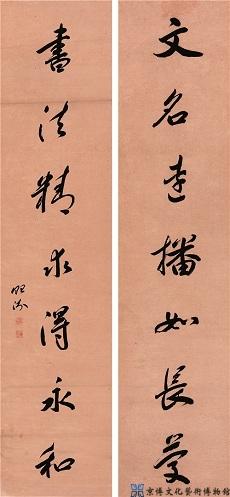 文名遠播如長慶
書法精求得永和
京博文化藝術博物館